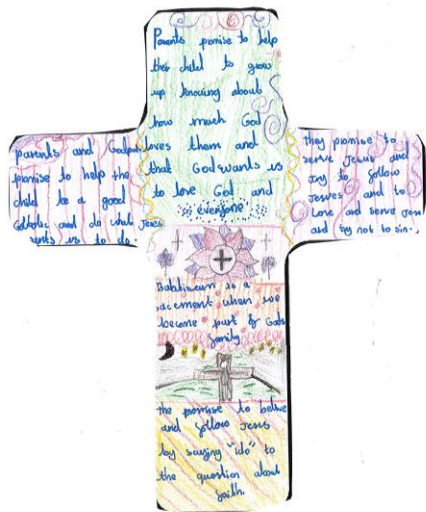 Parents promise to help
their child to grow
up knowing about
how much God
loves them and
that God wants us
to love God and
everyone
parents and Godpar
promise to help the
child be a good
Catholic and do what Jesus
wants us to do.
they promise to
serve Jesus and
try to follow
Jesus and to
Love and serve Jesus
and try not to sin.
Babtiseum is a
sacement when we
become part of Gods
family
the promise to belive
and follow Jesus
by saying "ido" to
the question about
faith.